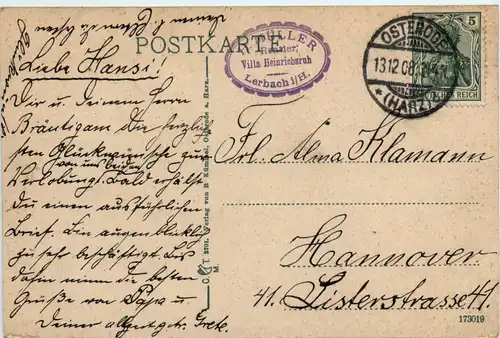 POSTKARTE
MÜLLER
Rentner
Villa Heinrichsruh
Lerbach i/H.
OSTERODE
13.12.08
* (HARZ)
5
DEUTSCHES REICH
Liebe Hansi!
Dir u. Deinem Herrn
Bräutigam die herzlich-
sten Glückwünsche zur
von uns beiden
Verlobung. Bald erhälst
Du einen ausführlichen
Brief. Bin augenblicklich
zu sehr beschäftigt. Bis
dahin nimm die besten
Grüße von Papa u.
Deiner Grete.
Frl. Alma Klamann
Hannover
41. Listerstrasse 41.
Verlag von R. Kümmel, Osterode a. Harz.
173019